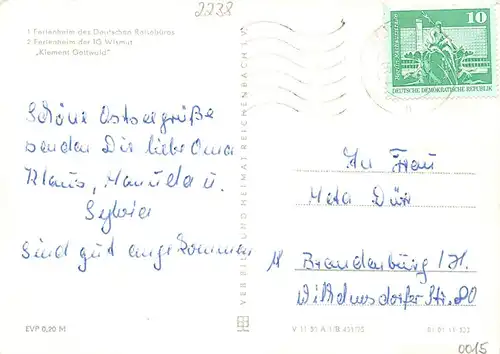 2238
1 Ferienheim des Deutschen Reisebüros
2 Ferienheim der IG Wismut
„Klement Gottwald"
10
DEUTSCHE DEMOKRATISCHE REPUBLIK
Schöne Ostseegrüße
senden Dir liebe Oma
Klaus, Manuela u.
Sylvia
Sind gut angekommen
VEB BILD UND HEIMAT REICHENBACH I. V.
An Frau
Meta Dürr
Brandenburg/H.
Wilhelmsdorfer Str. 80
EVP 0,20 M
0015